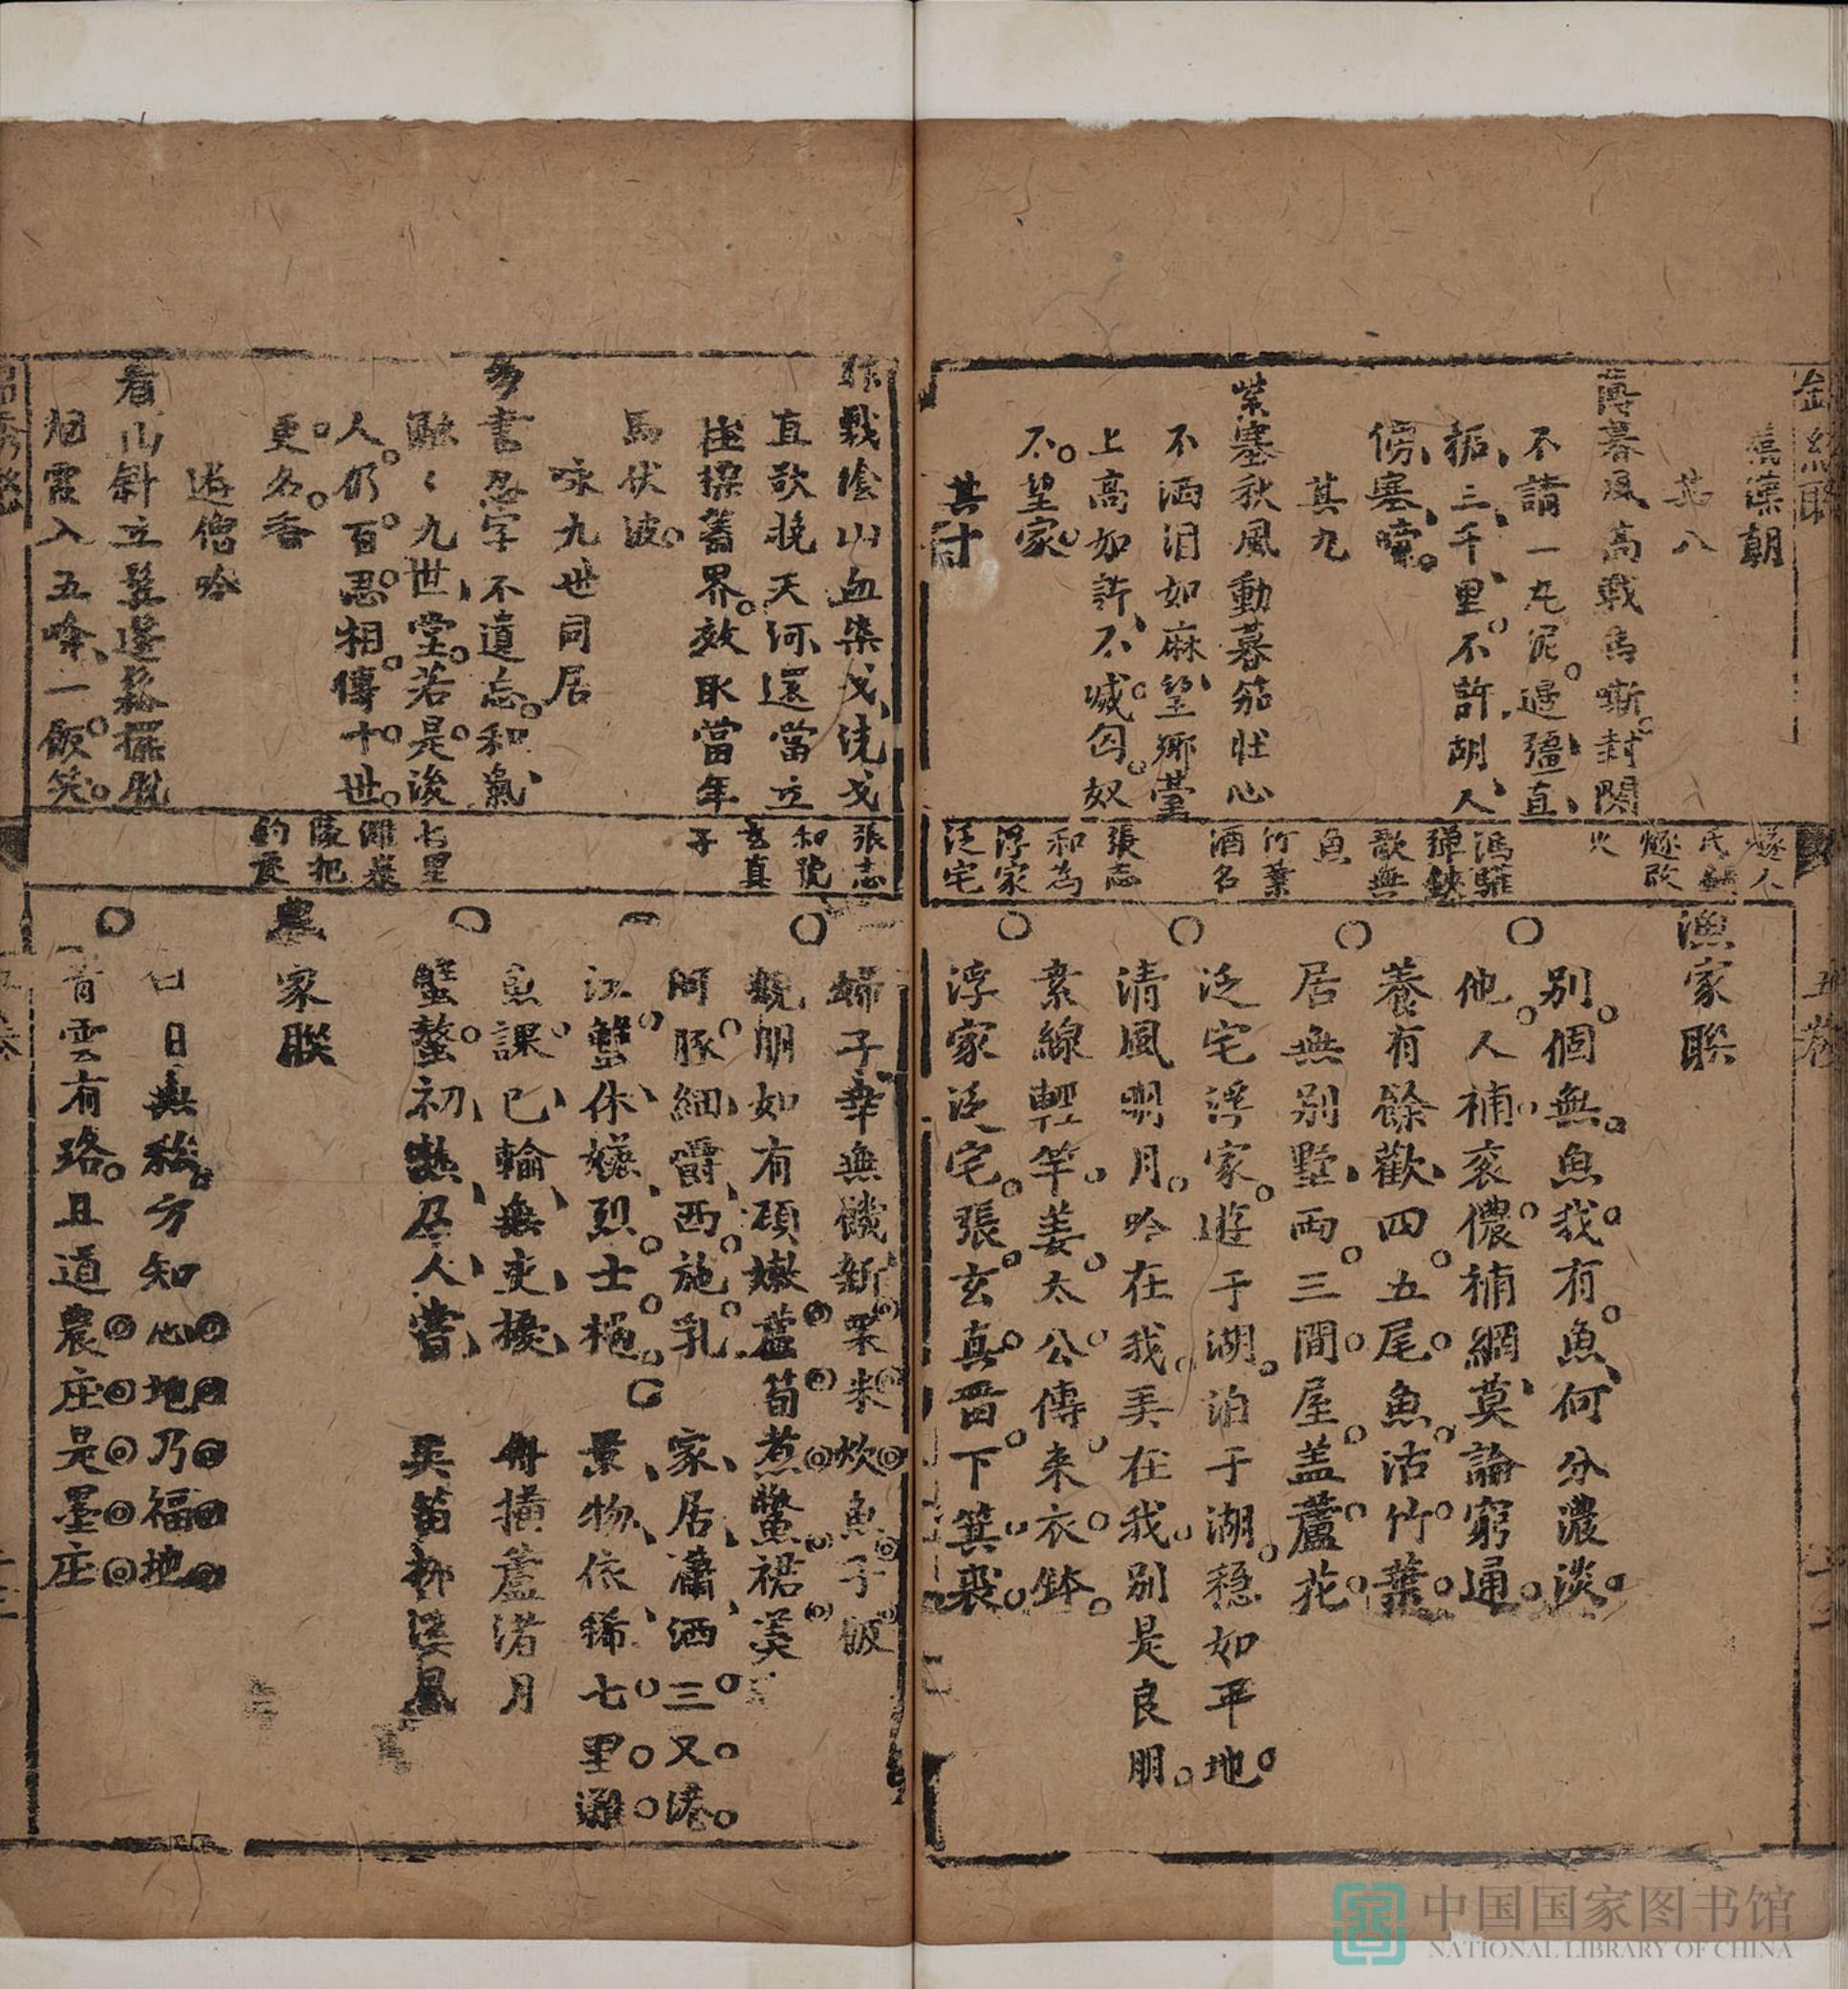 其八
薄暮風高戰馬嘶封關
不請一丸泥邊疆直
拓三千里不許胡人
傍塞啼
其九
紫塞秋風動暮笳壯心
不洒泪如麻望鄉臺
上高如許不滅匈奴
不望家
其十
燧人
氏
燧改
火
馮驩
彈鋏
歌無
魚
竹葉
酒名
張志
和為
浮家
泛宅
漁家聯
別個無魚我有魚何分濃淡
他人補衮儂補網莫論窮通
養有餘歡四五尾魚沽竹葉
居無別墅兩三間屋盖蘆花
泛宅浮家遊于湖泊于湖穩如平地
清風明月吟在我美在我別是良朋
素線輕竿姜太公傳来衣鉢
浮家泛宅張玄真晋下箕裘
五卷
昨戰陰山血染戈洗戈
直欲挽天河還當立
柱標舊界效取當年
馬伏波
咏九世同居
多書忍字不遺忘和氣
融融九世堂若是後
人仍百忍相傳十世
更名香
遊僧吟
看山斜立髮邊鬆擺脫
烟霞入五峰一飯笑
張志
和號
玄真
子
七里
灘嚴
陵把
釣處
婦子幸無饑新罛米炊魚子飯
親朋如有碩嫩蘆筍煮鱉裙羹
河豚細嚼西施乳 家居瀟洒三叉港
江蟹休嫌烈士袍 景物依稀七里灘
魚課已輸無吏擾 舟橫蘆渚月
蟹螯初熟召人嘗 笛弄柳溪風
農家聯
白日無私方知心地乃福地
青雲有路且道農庄是墨庄